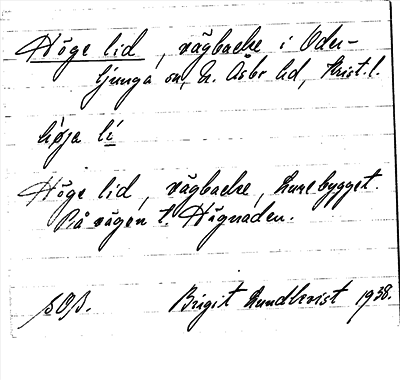 Höge lid, vägbacke i Oder-
ljunga sn, N. Åsbo hd, Krist. l.
höja li
Höge lid, vägbacke, Lurebygget.
På vägen t. Hägnaden.
Birgit Lundkvist 1938.